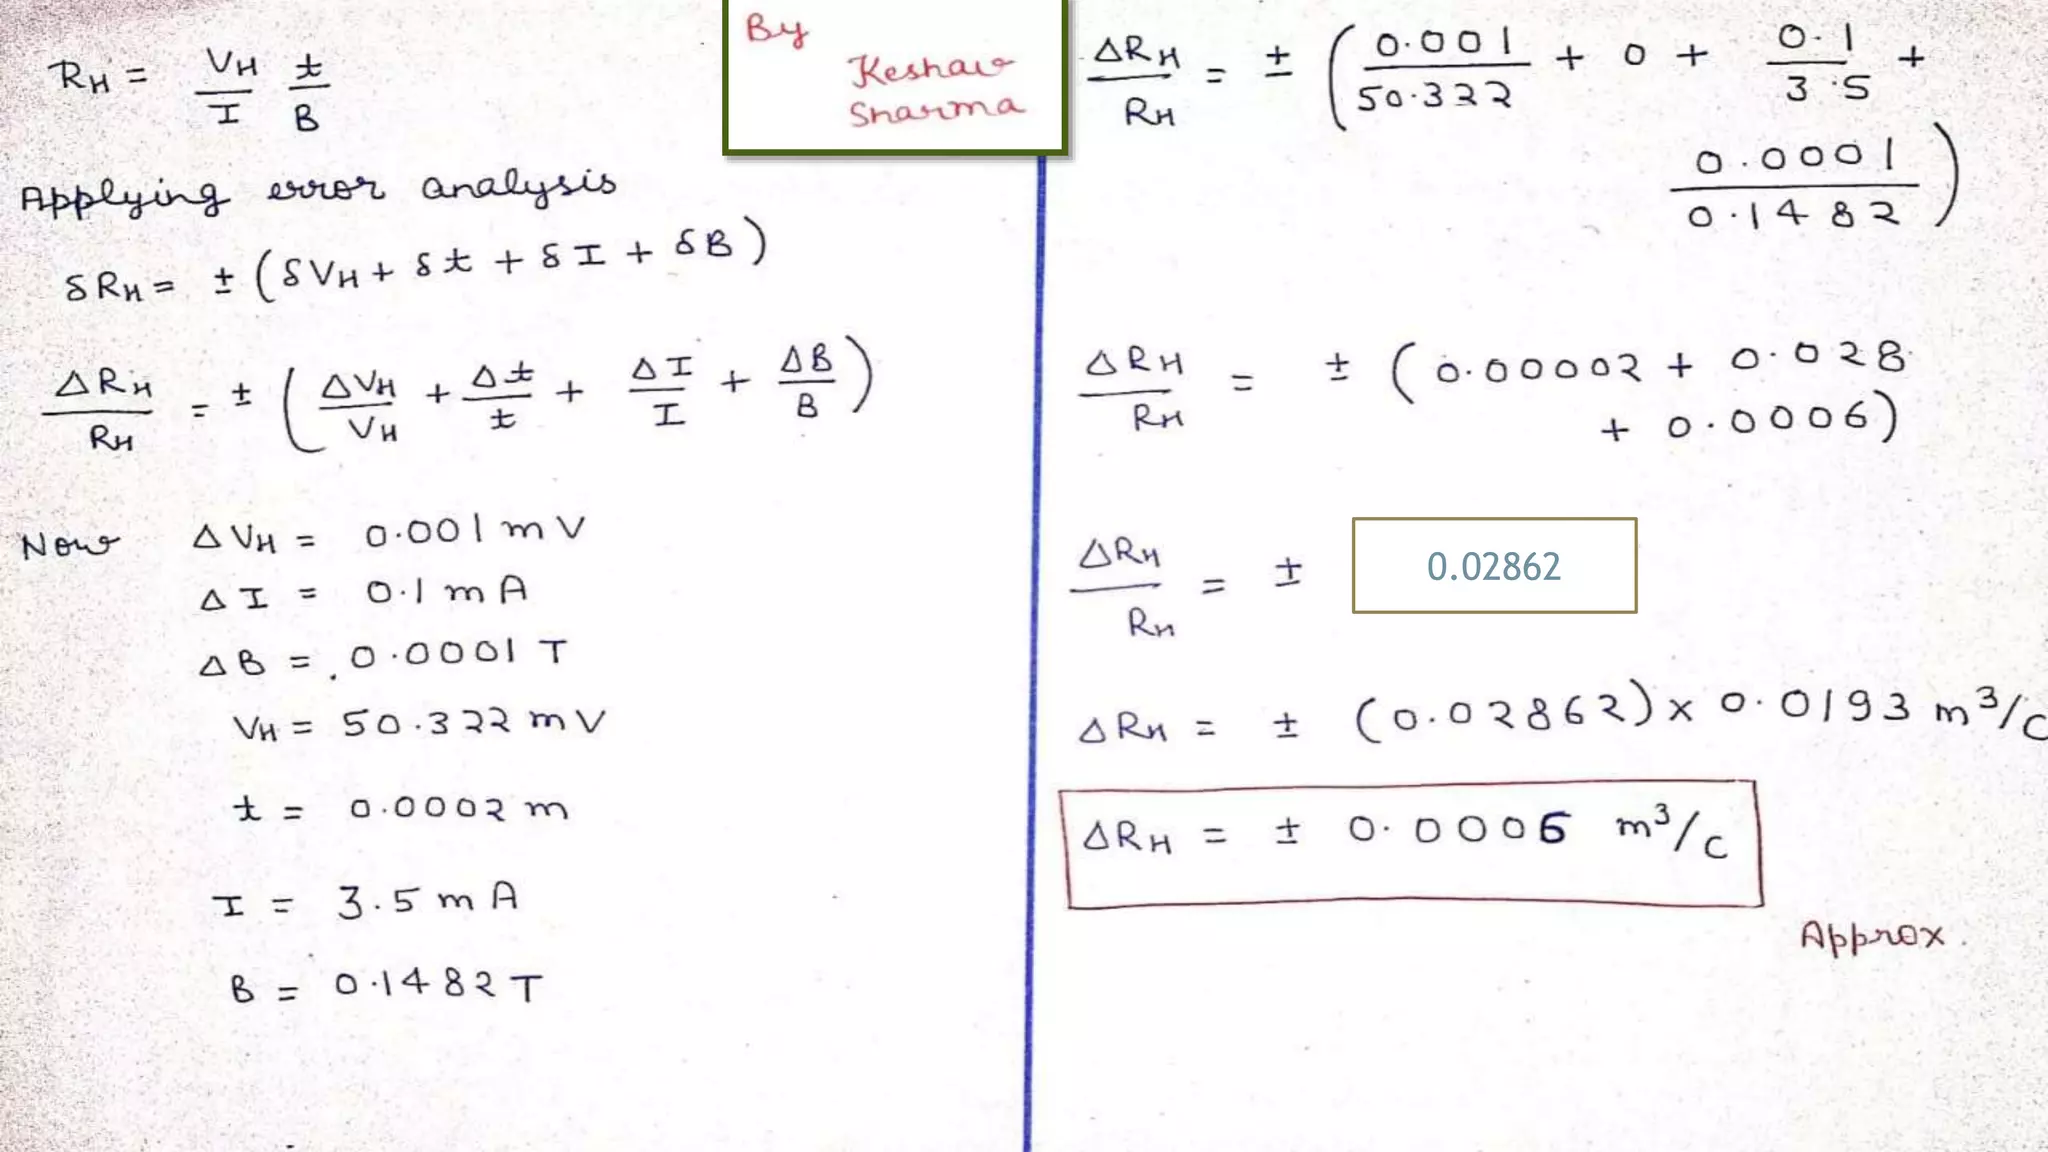 R_H = V_H/I t/B
Applying error analysis
δR_H = ± (δV_H + δt + δI + δB)
ΔR_H/R_H = ± (ΔV_H/V_H + Δt/t + ΔI/I + ΔB/B)
Now ΔV_H = 0.001 mV
ΔI = 0.1 mA
ΔB = 0.0001 T
V_H = 50.322 mV
t = 0.0002 m
I = 3.5 mA
B = 0.1482 T
By
Keshav
Sharma
ΔR_H/R_H = ± (0.001/50.322 + 0 + 0.1/3.5 +
0.0001/0.1482)
ΔR_H/R_H = ± (0.00002 + 0.028
+ 0.0006)
ΔR_H/R_H = ± 0.02862
ΔR_H = ± (0.02862) x 0.0193 m³/C
ΔR_H = ± 0.0005 m³/C
Approx.